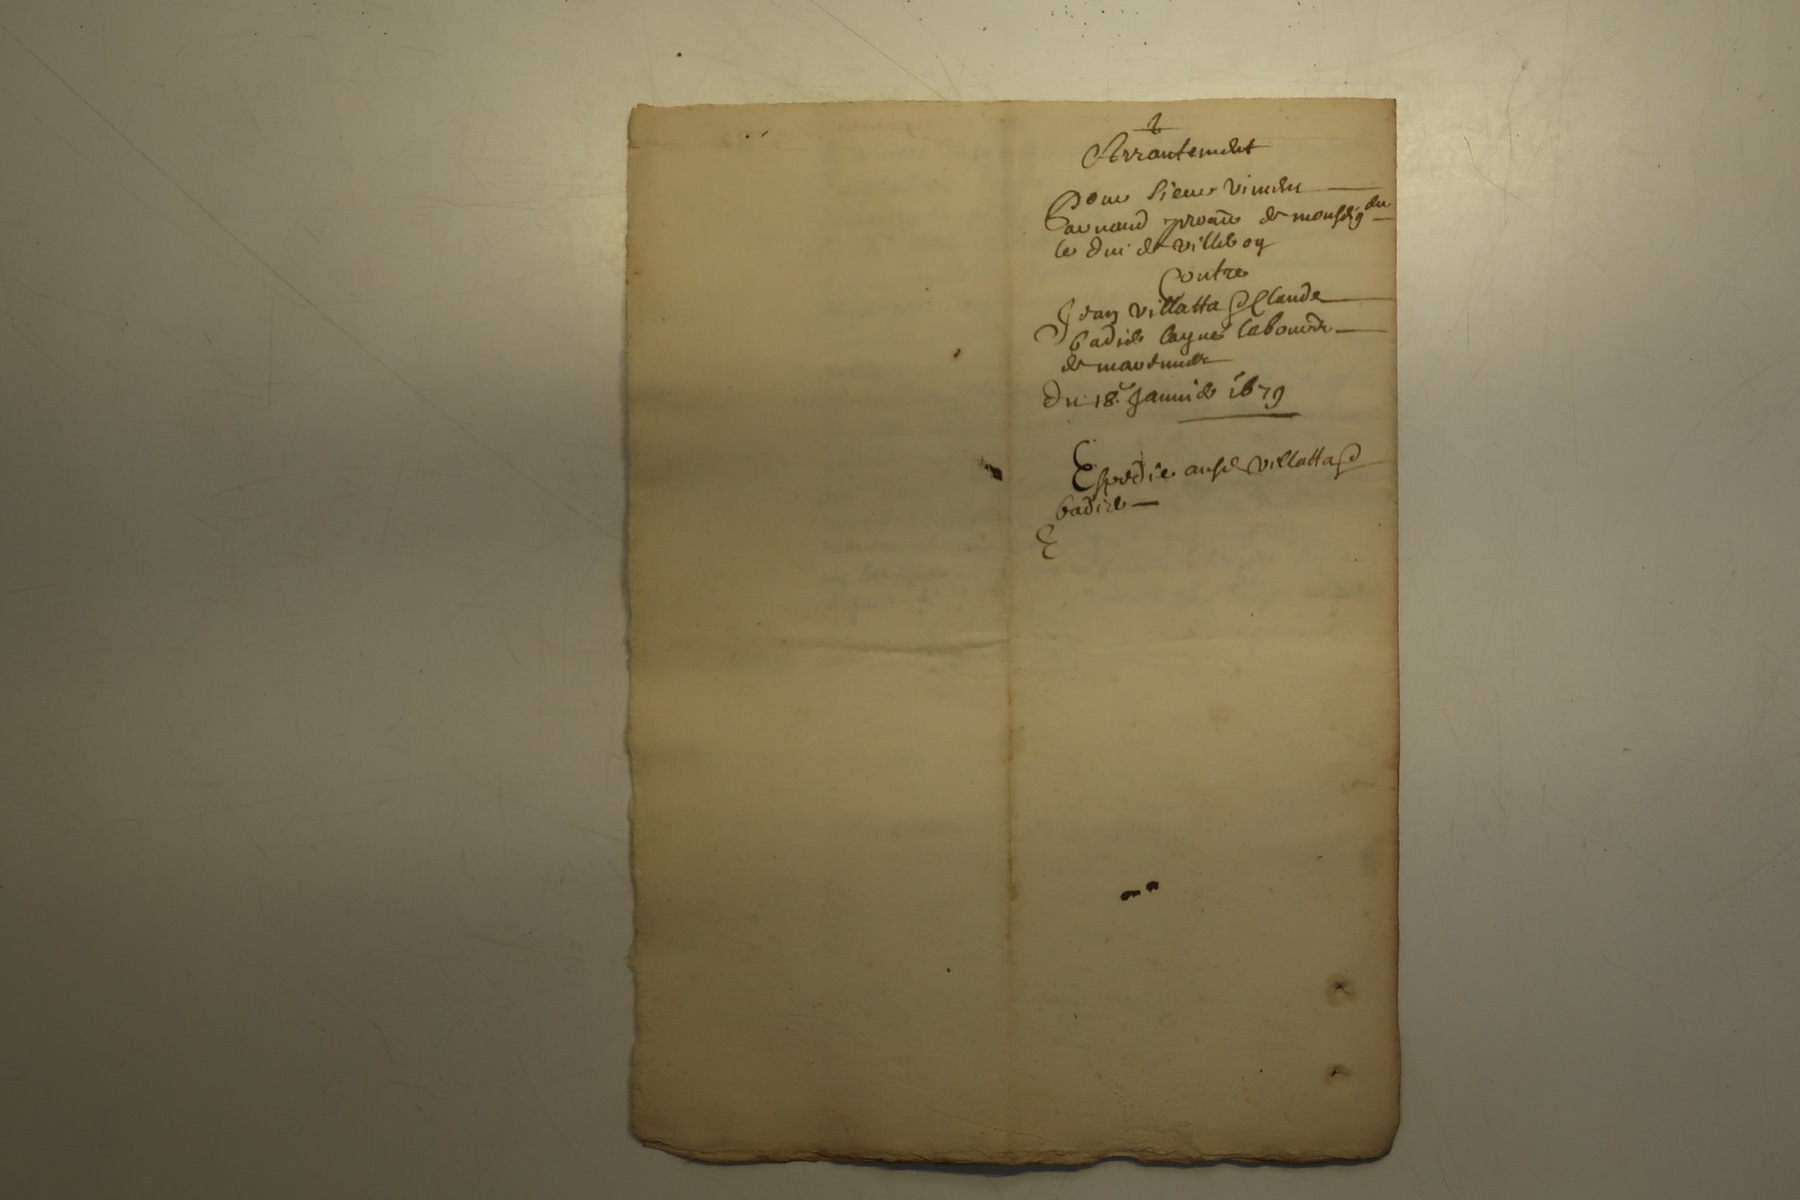 Arrantement
Pour Sieur Vincen
Garnaud procur de monseigr
le duc de Villeroy
Contre
Jean Villatta et Claude
badiele layné laboureur
de
du 18e Janvie 1679
Expedie audt Villatta et
badiele